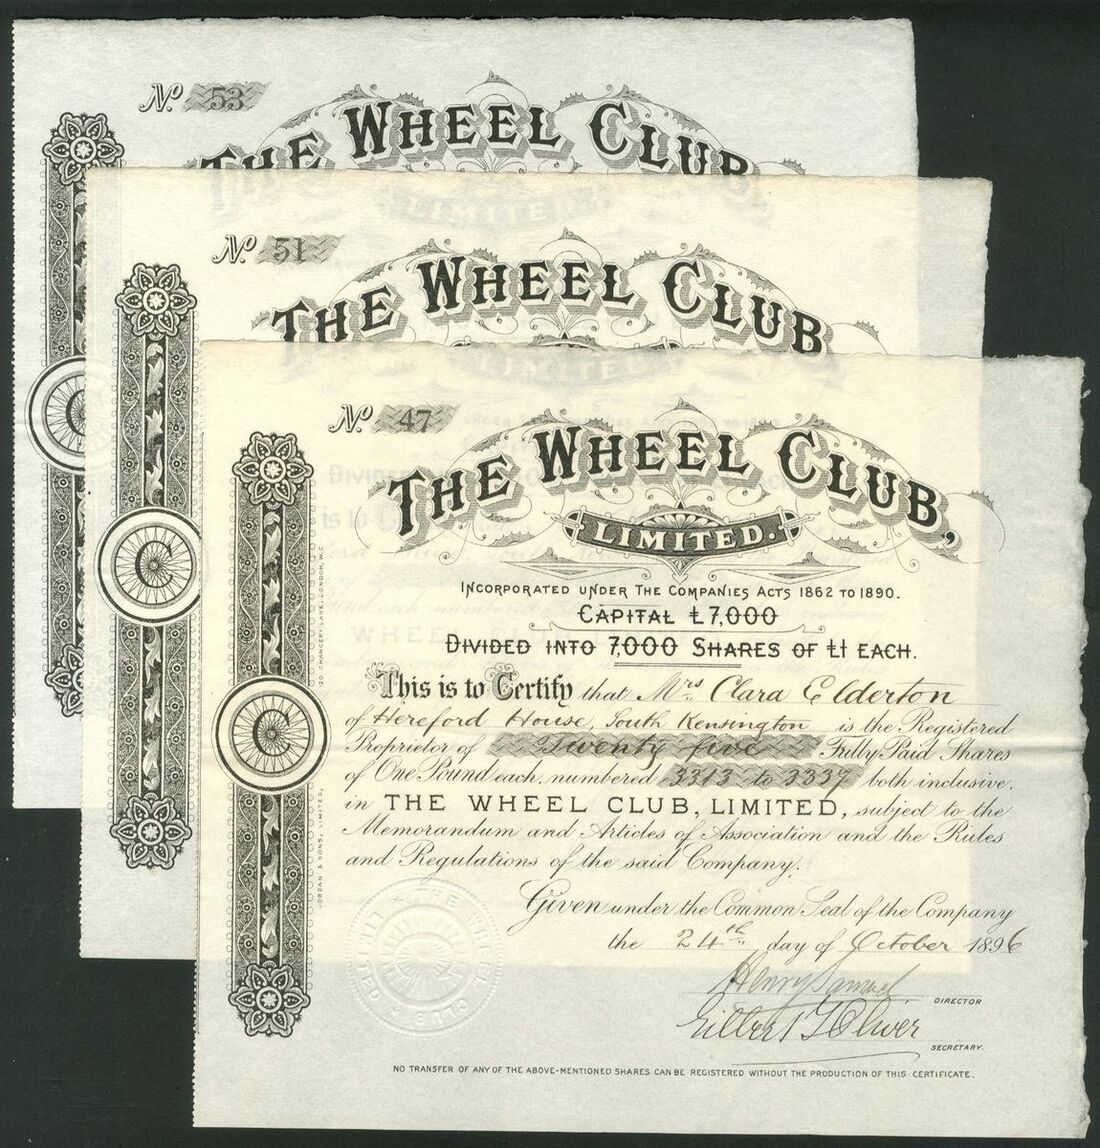 No. 53
THE WHEEL CLUB
LIMITED
No. 51
THE WHEEL CLUB
LIMITED
No. 47
THE WHEEL CLUB,
LIMITED.
INCORPORATED UNDER THE COMPANIES ACTS 1862 TO 1890.
CAPITAL £7,000
DIVIDED INTO 7,000 SHARES OF £1 EACH.
This is to Certify that Mrs. Clara Elderton
of Hereford House, South Kensington is the Registered
Proprietor of Twenty five Fully Paid Shares
of One Pound each, numbered 3313 to 3337 both inclusive,
in THE WHEEL CLUB, LIMITED, subject to the
Memorandum and Articles of Association and the Rules
and Regulations of the said Company.
Given under the Common Seal of the Company
the 24th day of October 1896
Henry Samuel
DIRECTOR
Gilbert J Oliver
SECRETARY.
NO TRANSFER OF ANY OF THE ABOVE-MENTIONED SHARES CAN BE REGISTERED WITHOUT THE PRODUCTION OF THIS CERTIFICATE.
C
C
C
JORDAN & SONS, LIMITED, 120, CHANCERY LANE, LONDON, W.C.
THE WHEEL CLUB LIMITED